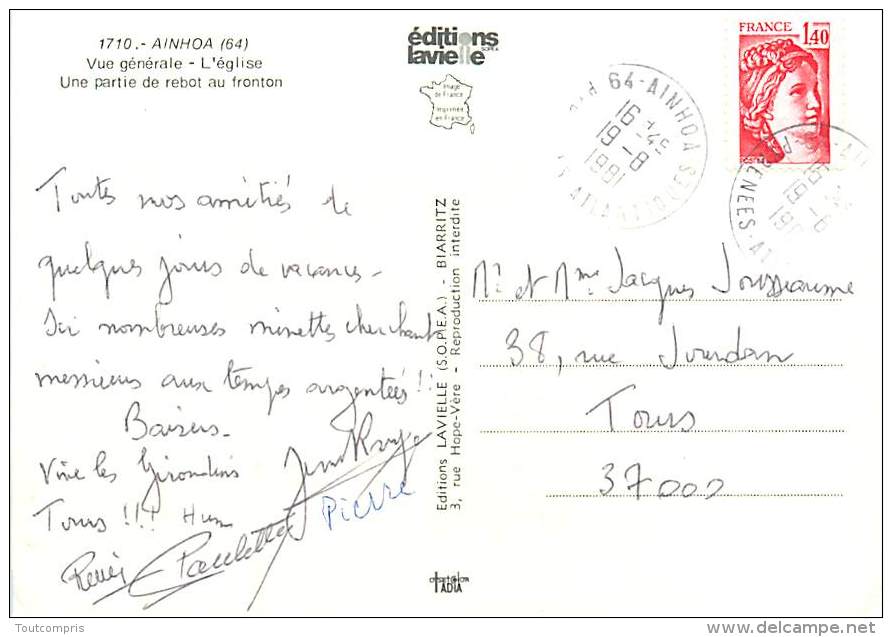 1710.- AINHOA (64)
Vue générale - L'église
Une partie de rebot au fronton
éditions
lavielle
SOPEA
Image
de France
Imprimée
en France
Toutes nos amitiés de
quelques jours de vacances -
Ici nombreuses minettes cherchant
messieurs aux tempes argentées !!
Baisers -
Vive les Girondins
Tours !!! Hum
René Paulette Pierre
Editions LAVIELLE (S.O.P.E.A.) - BIARRITZ
3, rue Hope-Vère - Reproduction interdite
64-AINHOA
16-45
19-8
1981
ATLANTIQUES
FRANCE
1,40
Mr et Mme Jacques Jousseaume
38, rue Jourdan
Tours
37000
IADIA
Toutcompris
delcampe.net